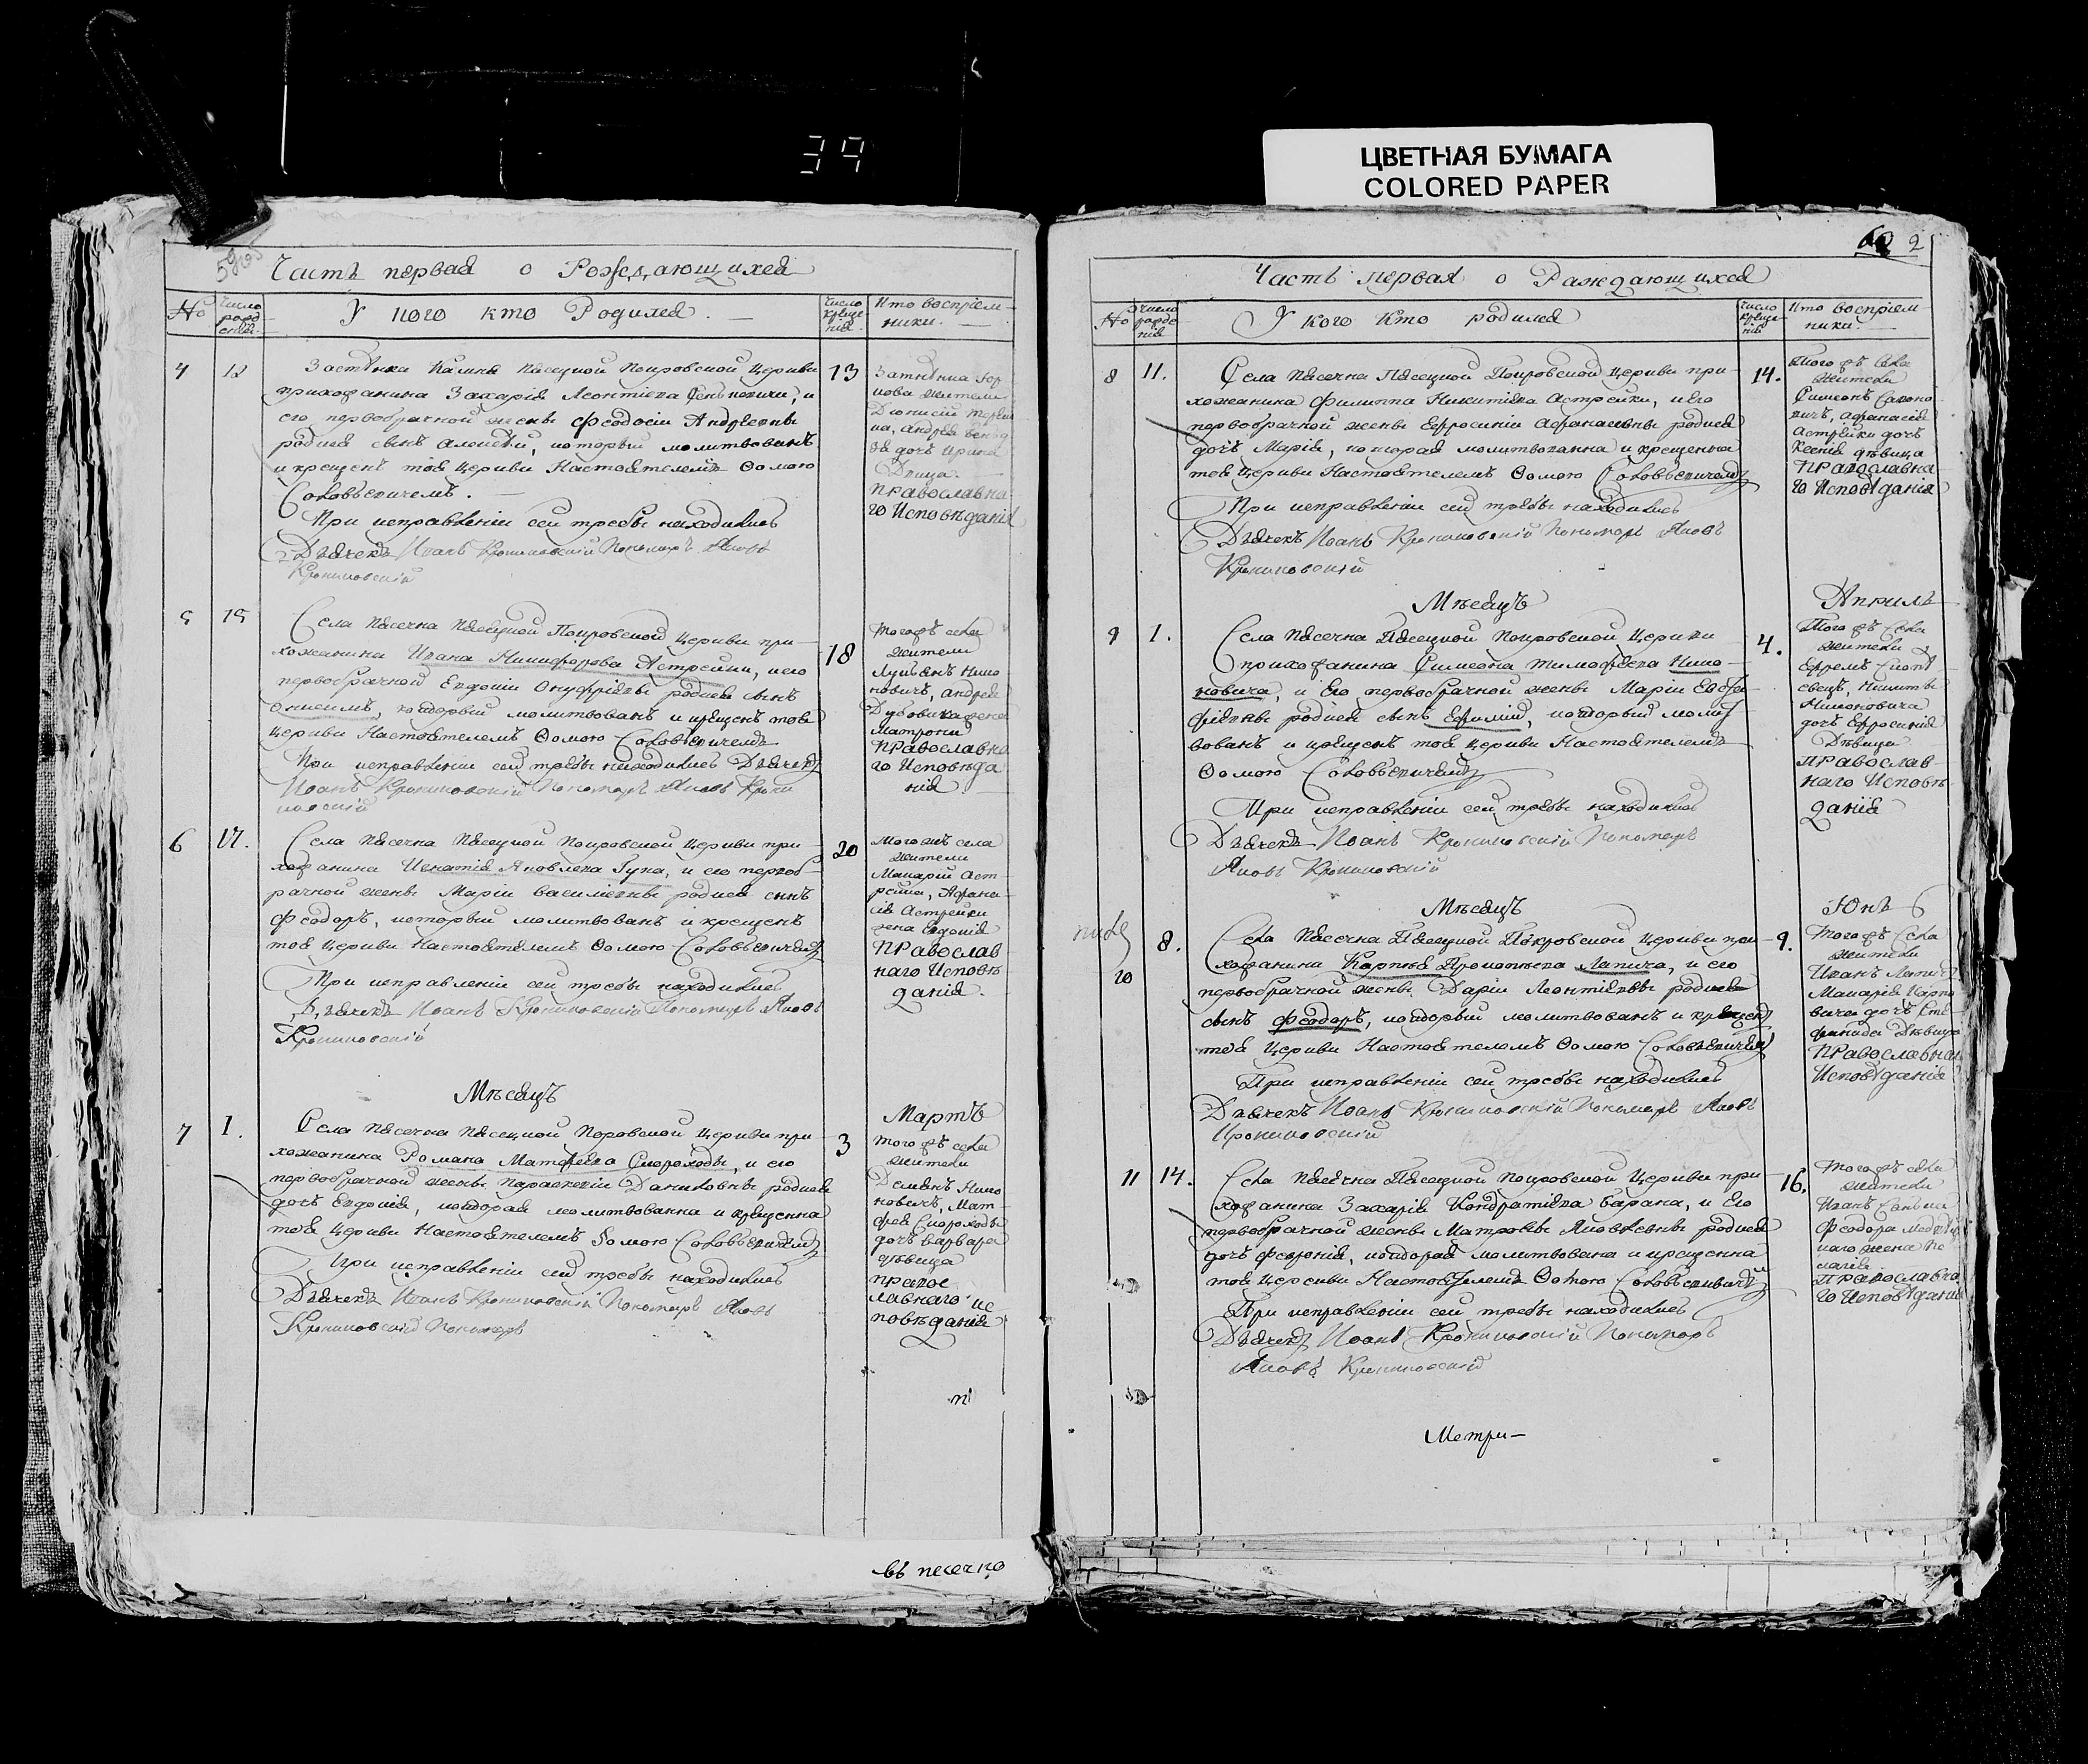 39
ЦВЕТНАЯ БУМАГА
COLORED PAPER
Часть первая о Рождающихся
№
Число рожд
У кого кто Родился.
Число креще
нія
Кто воспріем-
ники.
4
12
Застѣнка Камня Пасецкой Покровской Церкви
прихожанина Захарія Леонтіева и
его первобрачной жены Феодосіи Андреевны
родился сынъ Алексѣй, который молитвованъ
и крещенъ тоя Церкви Настоятелемъ Ѳомою
Соловьевичемъ.
При исправленіи сей требы находились
Дьячекъ Иоанъ Крониковскій Пономаръ Яковъ
Крониковскій
13
Застѣнка
жители
Дионисій
Андрея
дочь Ирина
Дѣвица
Православна
го Исповѣданія
5
15
Села Пасечна Пасецкой Покровской Церкви при-
хожанина Ивана Никифорова Астрейки, и его
первобрачной Евдокіи Онуфріевы родился сынъ
Онисимъ, который молитвованъ и крещенъ тоя
Церкви Настоятелемъ Ѳомою Соловьевичемъ
При исправленіи сей требы находились Дьячекъ
Иоанъ Крониковскій Пономаръ Яковъ Крони
ковскій
18
Того жъ села
жители
Лукьянъ Нико
новичъ, Андрея
жена
Матрона
Православна
го Исповѣда
нія
6
17.
Села Пасечна Пасецкой Покровской Церкви при-
хожанина Игнатія Яковлева Гука, и его первоб-
рачной жены Маріи Василіевны родился сынъ
Феодоръ, который молитвованъ и крещенъ
тоя Церкви Настоятелемъ Ѳомою Соловьевичемъ
При исправленіи сей требы находились
Дьячекъ Иоанъ Крониковскій Пономаръ Яковъ
Крониковскій
20
Того жъ села
жители
Макарій Аст-
рейка, Афана-
сія Астрейки
жена Евдокія
Православ
наго Исповѣ
данія.
Мѣсяцъ
Мартъ
7
1.
Села Пасечна Пасецкой Поровской Церкви при
хожанина Романа Матфѣева Скороходы, и его
первобрачной жены Параскевіи Даниловны родилась
дочь Евдокія, которая молитвованна и крещенна
тоя Церкви Настоятелемъ Ѳомою Соловьевичемъ
При исправленіи сей требы находились
Дьячекъ Иоанъ Крониковскій Пономаръ Яковъ
Крониковскій Пономаръ
3
Того жъ села
жители
Демьянъ Нико
новичъ, Мат-
фея Скороходы
дочь Варвара
дѣвица
Правос
лавнаго ис
повѣданія
въ песечно
2
Часть первая о Раждающихся
№
Число рожде
нія
У кого кто родился
Число креще-
нія
Кто воспріем-
ники.
8
11.
Села Пасечна Пасецкой Покровской Церкви при-
хожанина Филиппа Никитіева Астрейки, и его
первобрачной жены Ефросиніи Афанасіевны родилася
дочь Марія, которая молитвованна и крещенна
тоя Церкви Настоятелемъ Ѳомою Соловьевичемъ
При исправленіи сей требы находились
Дьячекъ Иоанъ Крониковскій Пономаръ Яковъ
Крониковскій
14.
Того жъ Села
жители
Симеонъ
Афанасія
Астрейки дочь
Ксенія дѣвица
Православна
го Исповѣданія
Мѣсяцъ
Априль
9
1.
Села Пасечна Пасецкой Покровской Церкви
прихожанина Симеона Тимофѣева Нико-
новича, и Его первобрачной жены Маріи Евста-
фіевны родился сынъ Ефимій, который молит
вованъ и крещенъ тоя Церкви Настоятелемъ
Ѳомою Соловьевичемъ
При исправленіи сей требы находились
Дьячекъ Иоанъ Крониковскій Пономаръ
Яковъ Крониковскій
4.
Того жъ Села
жители
Ефремъ
Никиты
Никоновича
дочь Ефросинія
Дѣвица
Православ-
наго Исповѣ
данія
Мѣсяцъ
Юнь
10
8.
Села Пасечна Пасецкой Покровской Церкви при-
хожанина Карпѣя Прокопѣева Лапича, и его
первобрачной жены Даріи Леонтіевы родился
сынъ Феодоръ, который молитвованъ и крещенъ
тоя Церкви Настоятелемъ Ѳомою Соловьевичемъ
При исправленіи сей требы находились
Дьячекъ Иоанъ Крониковскій Пономаръ Яковъ
Крониковскій
9.
Того жъ Села
жители
Иванъ Лапичъ
Макарія Карпо
вича дочь Сте
фанида Дѣвица
Православнаго
Исповѣданія
11
14.
Села Пасечна Пасецкой Покровской Церкви при-
хожанина Захарія Кондратіева Барана, и Его
первобрачной жены Матроны Яковлевны родилася
дочь Февронія, которая молитвована и крещенна
тоя Церкви Настоятелемъ Ѳомою Соловьевичемъ
При исправленіи сей требы находились
Дьячекъ Иоанъ Крониковскій Пономаръ
Яковъ Крониковскій
16.
Того жъ села
жители
Иванъ
Феодора
жена Пе
лагія
Православна
го Исповѣданія
Метри-